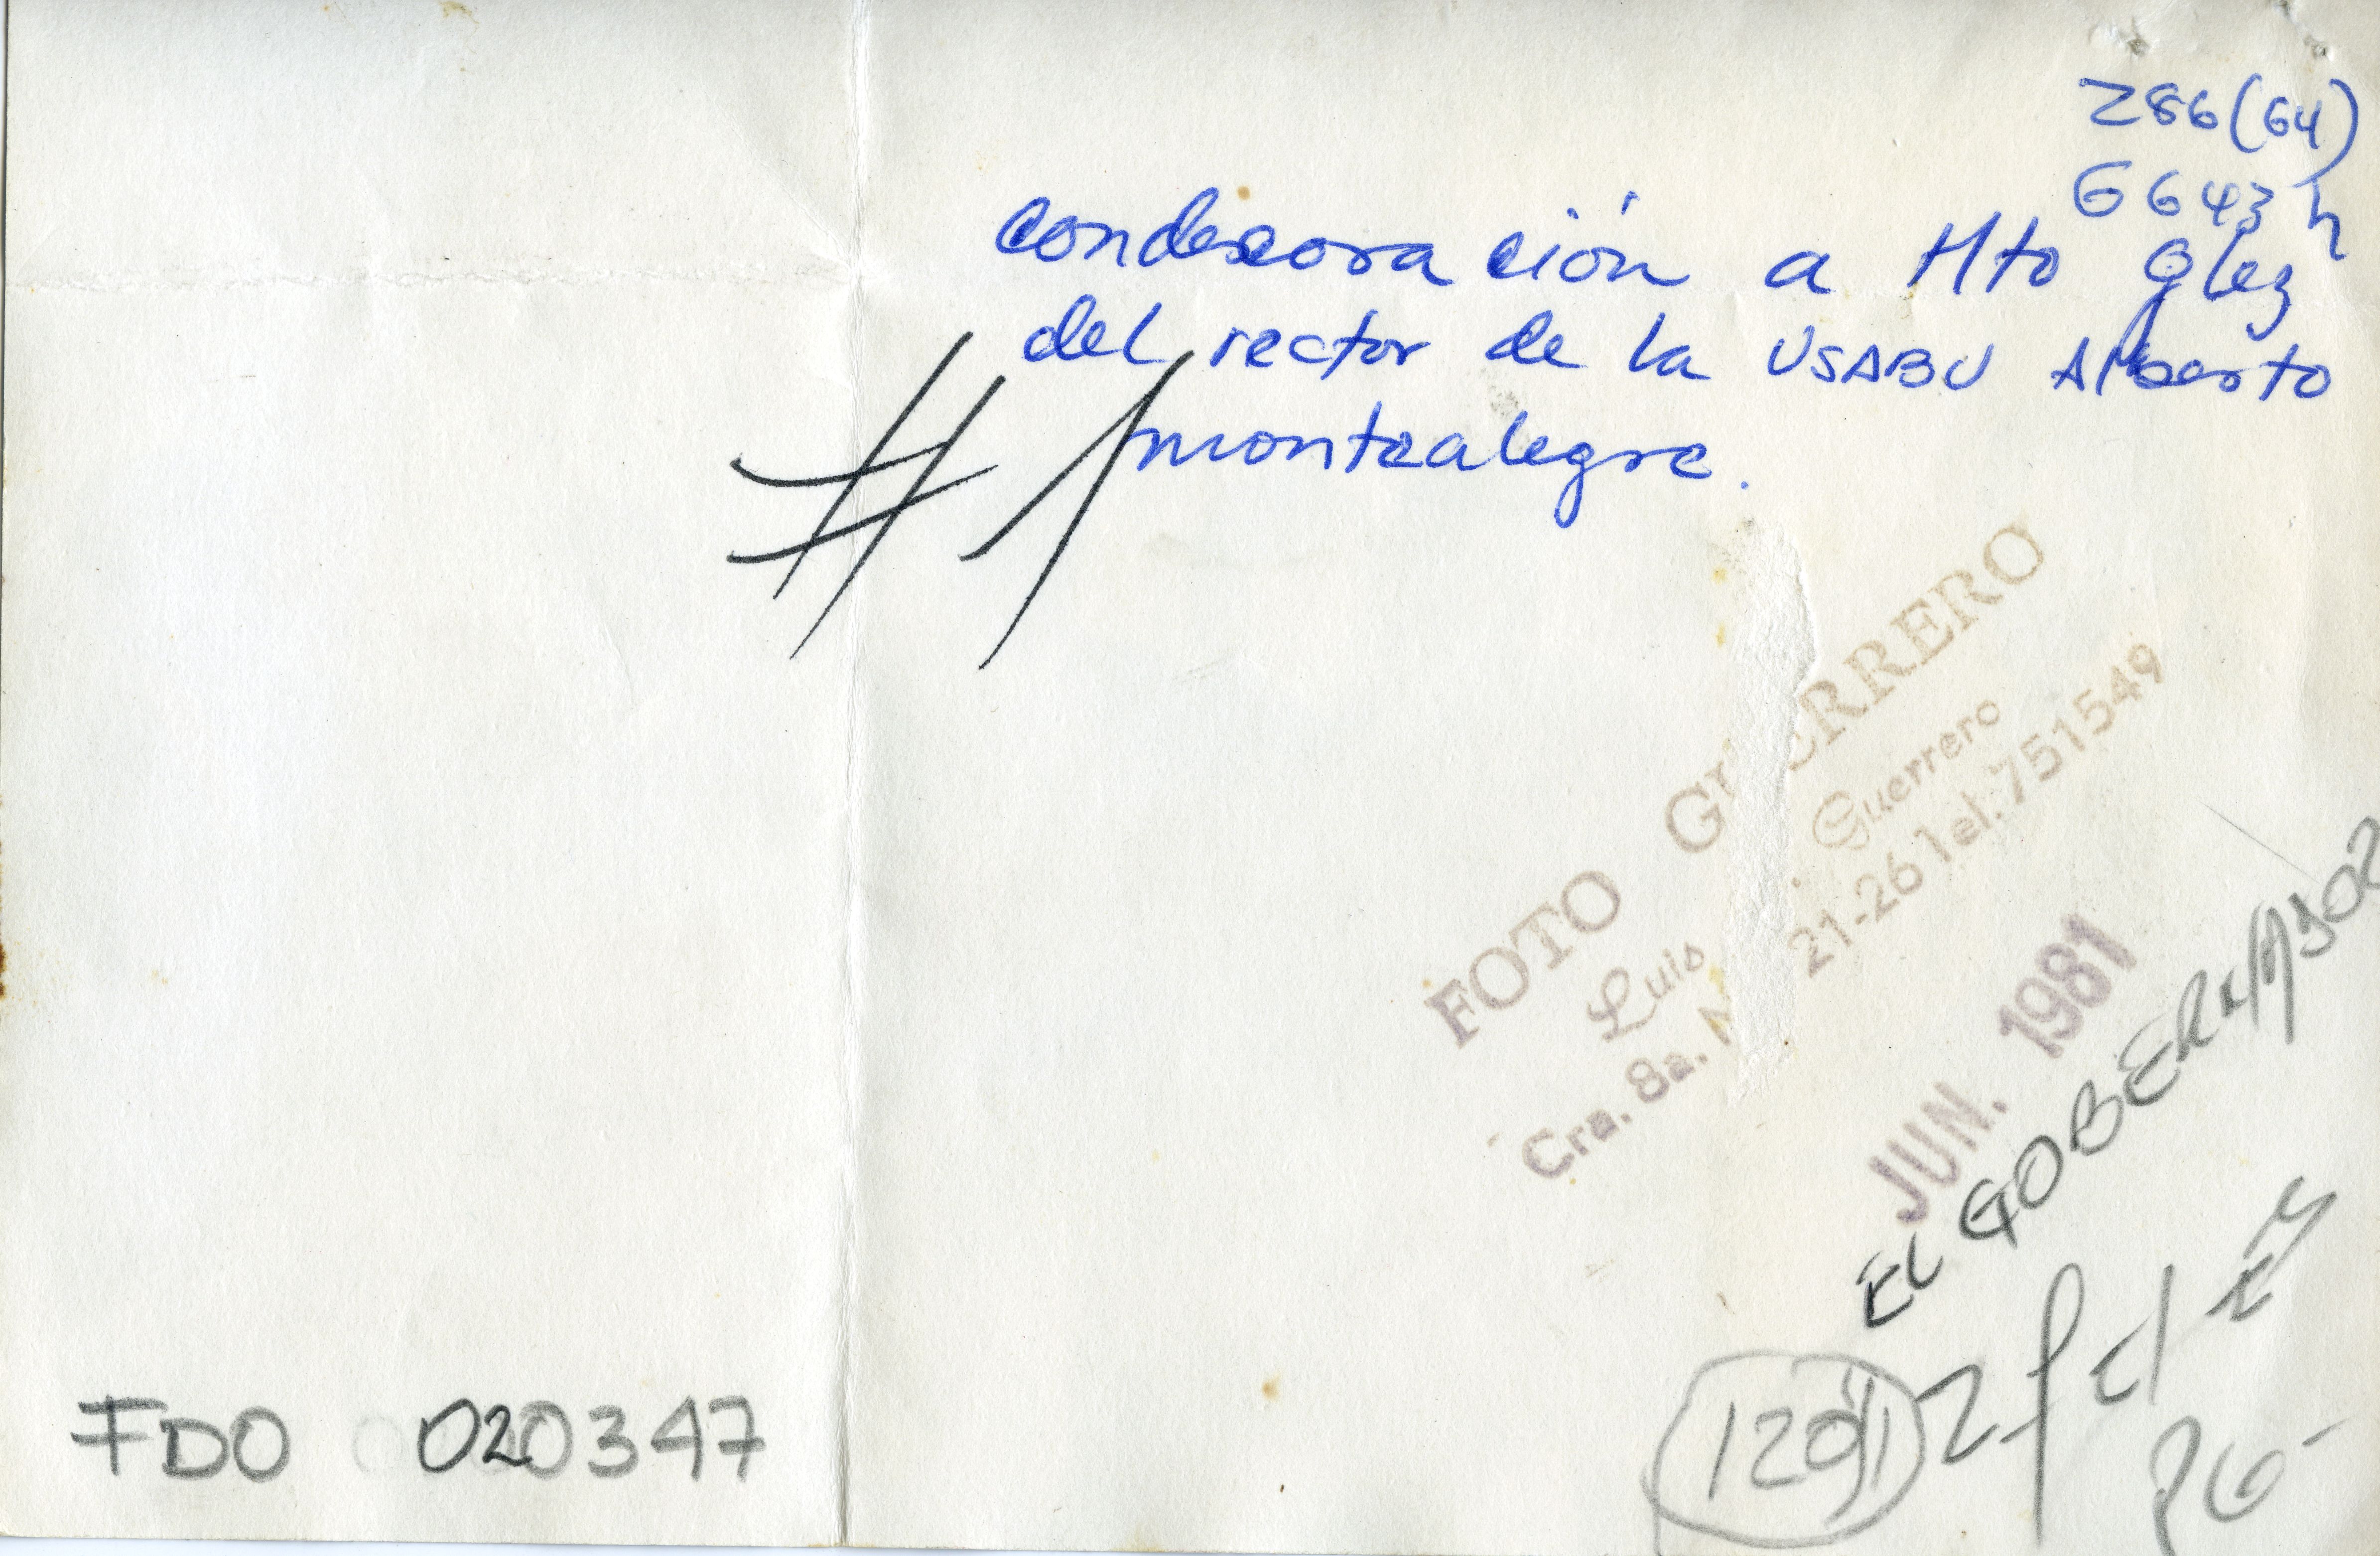 286(64)
6643h
condecoración a Hto glez
del rector de la USABU Alberto
montealegre.
#1
FOTO GUERRERO
Luis Guerrero
Cra. 8a. N 21-26 Tel. 751549
JUN. 1981
EL GOBERNADOR
1291
26-
FDO 020347